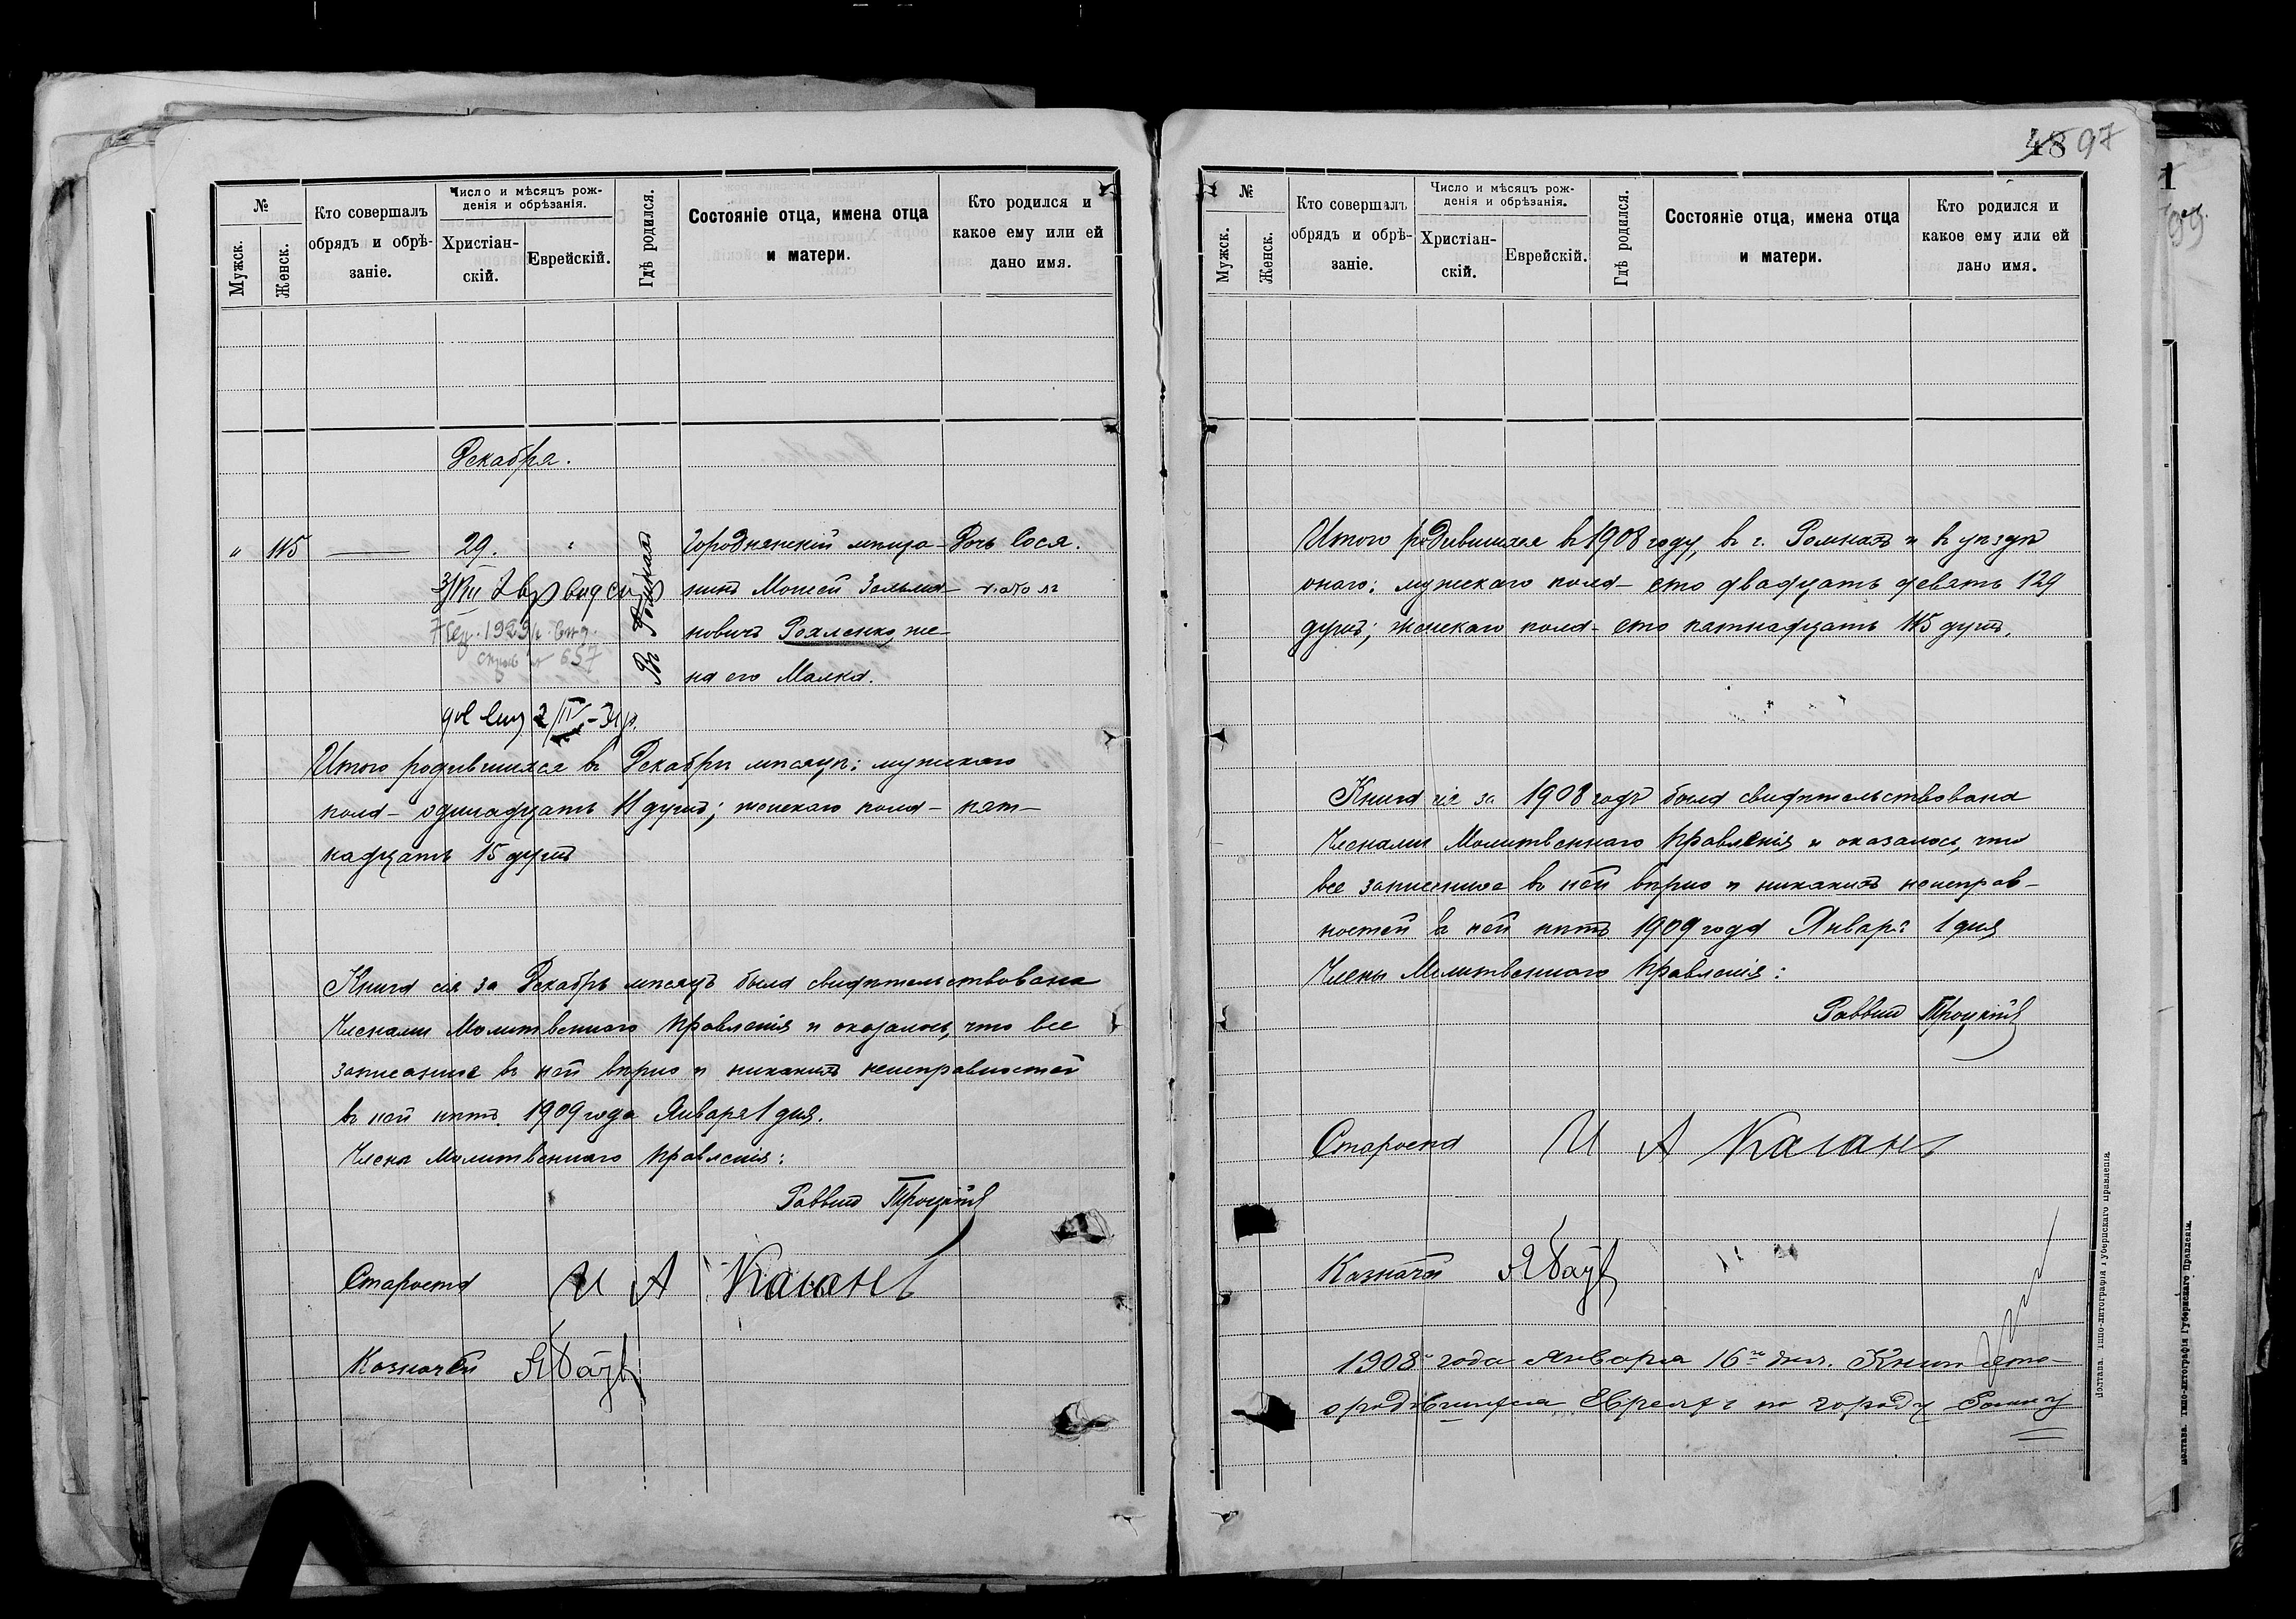 №
Мужск.
Женск.
Кто совершалъ обрядъ и обрѣ-заніе.
Число и мѣсяцъ рож-денія и обрѣзанія.
Христіан-скій.
Еврейскій.
Гдѣ родился.
Состояніе отца, имена отца и матери.
Кто родился и какое ему или ей дано имя.
Декабря.
" 115 — 29. "
Въ Ромнахъ
Городнянскій мѣща-
нинъ Мовшей Зельма-
новичъ Рохленко, же-
на его Малка.
Дочь Сося.
7 1929 р.
№ 657
Итого родившихся въ Декабрѣ мѣсяцѣ: мужскаго
пола – одинадцать 11 душъ; женскаго пола – пят-
надцать 15 душъ
Книга сія за Декабрь мѣсяцъ была свидѣтельствована
Членами Молитвеннаго Правленія и оказалось, что все
записанное въ ней вѣрно и никакихъ неисправностей
въ ней нѣтъ. 1909 года Января 1 дня.
Члены Молитвеннаго Правленія:
Раввинъ Троцкій
Староста И А Каганъ
Казначей
48 97
№
Мужск.
Женск.
Кто совершалъ обрядъ и обрѣ-заніе.
Число и мѣсяцъ рож-денія и обрѣзанія.
Христіан-скій.
Еврейскій.
Гдѣ родился.
Состояніе отца, имена отца и матери.
Кто родился и какое ему или ей дано имя.
Итого родившихся въ 1908 году, въ г. Ромнахъ и въ уѣздѣ
оного: мужскаго пола – сто двадцать девять 129
душъ; женскаго пола – сто пятнадцать 115 душъ.
Книга сія за 1908 годъ была свидѣтельствована
Членами Молитвеннаго Правленія и оказалось, что
все записанное въ ней вѣрно и никакихъ неисправ-
ностей въ ней нѣтъ 1909 года Января 1 дня
Члены Молитвеннаго Правленія:
Раввинъ Троцкій
Староста И А Каганъ
Казначей
1908 года Января 16 дня. Книга
о родившихся Евреяхъ по городу Ромну
Полтава. Типо-литографія Губернскаго Правленія.
1
99
Полтава. Типо-литографія Губернскаго Правленія.